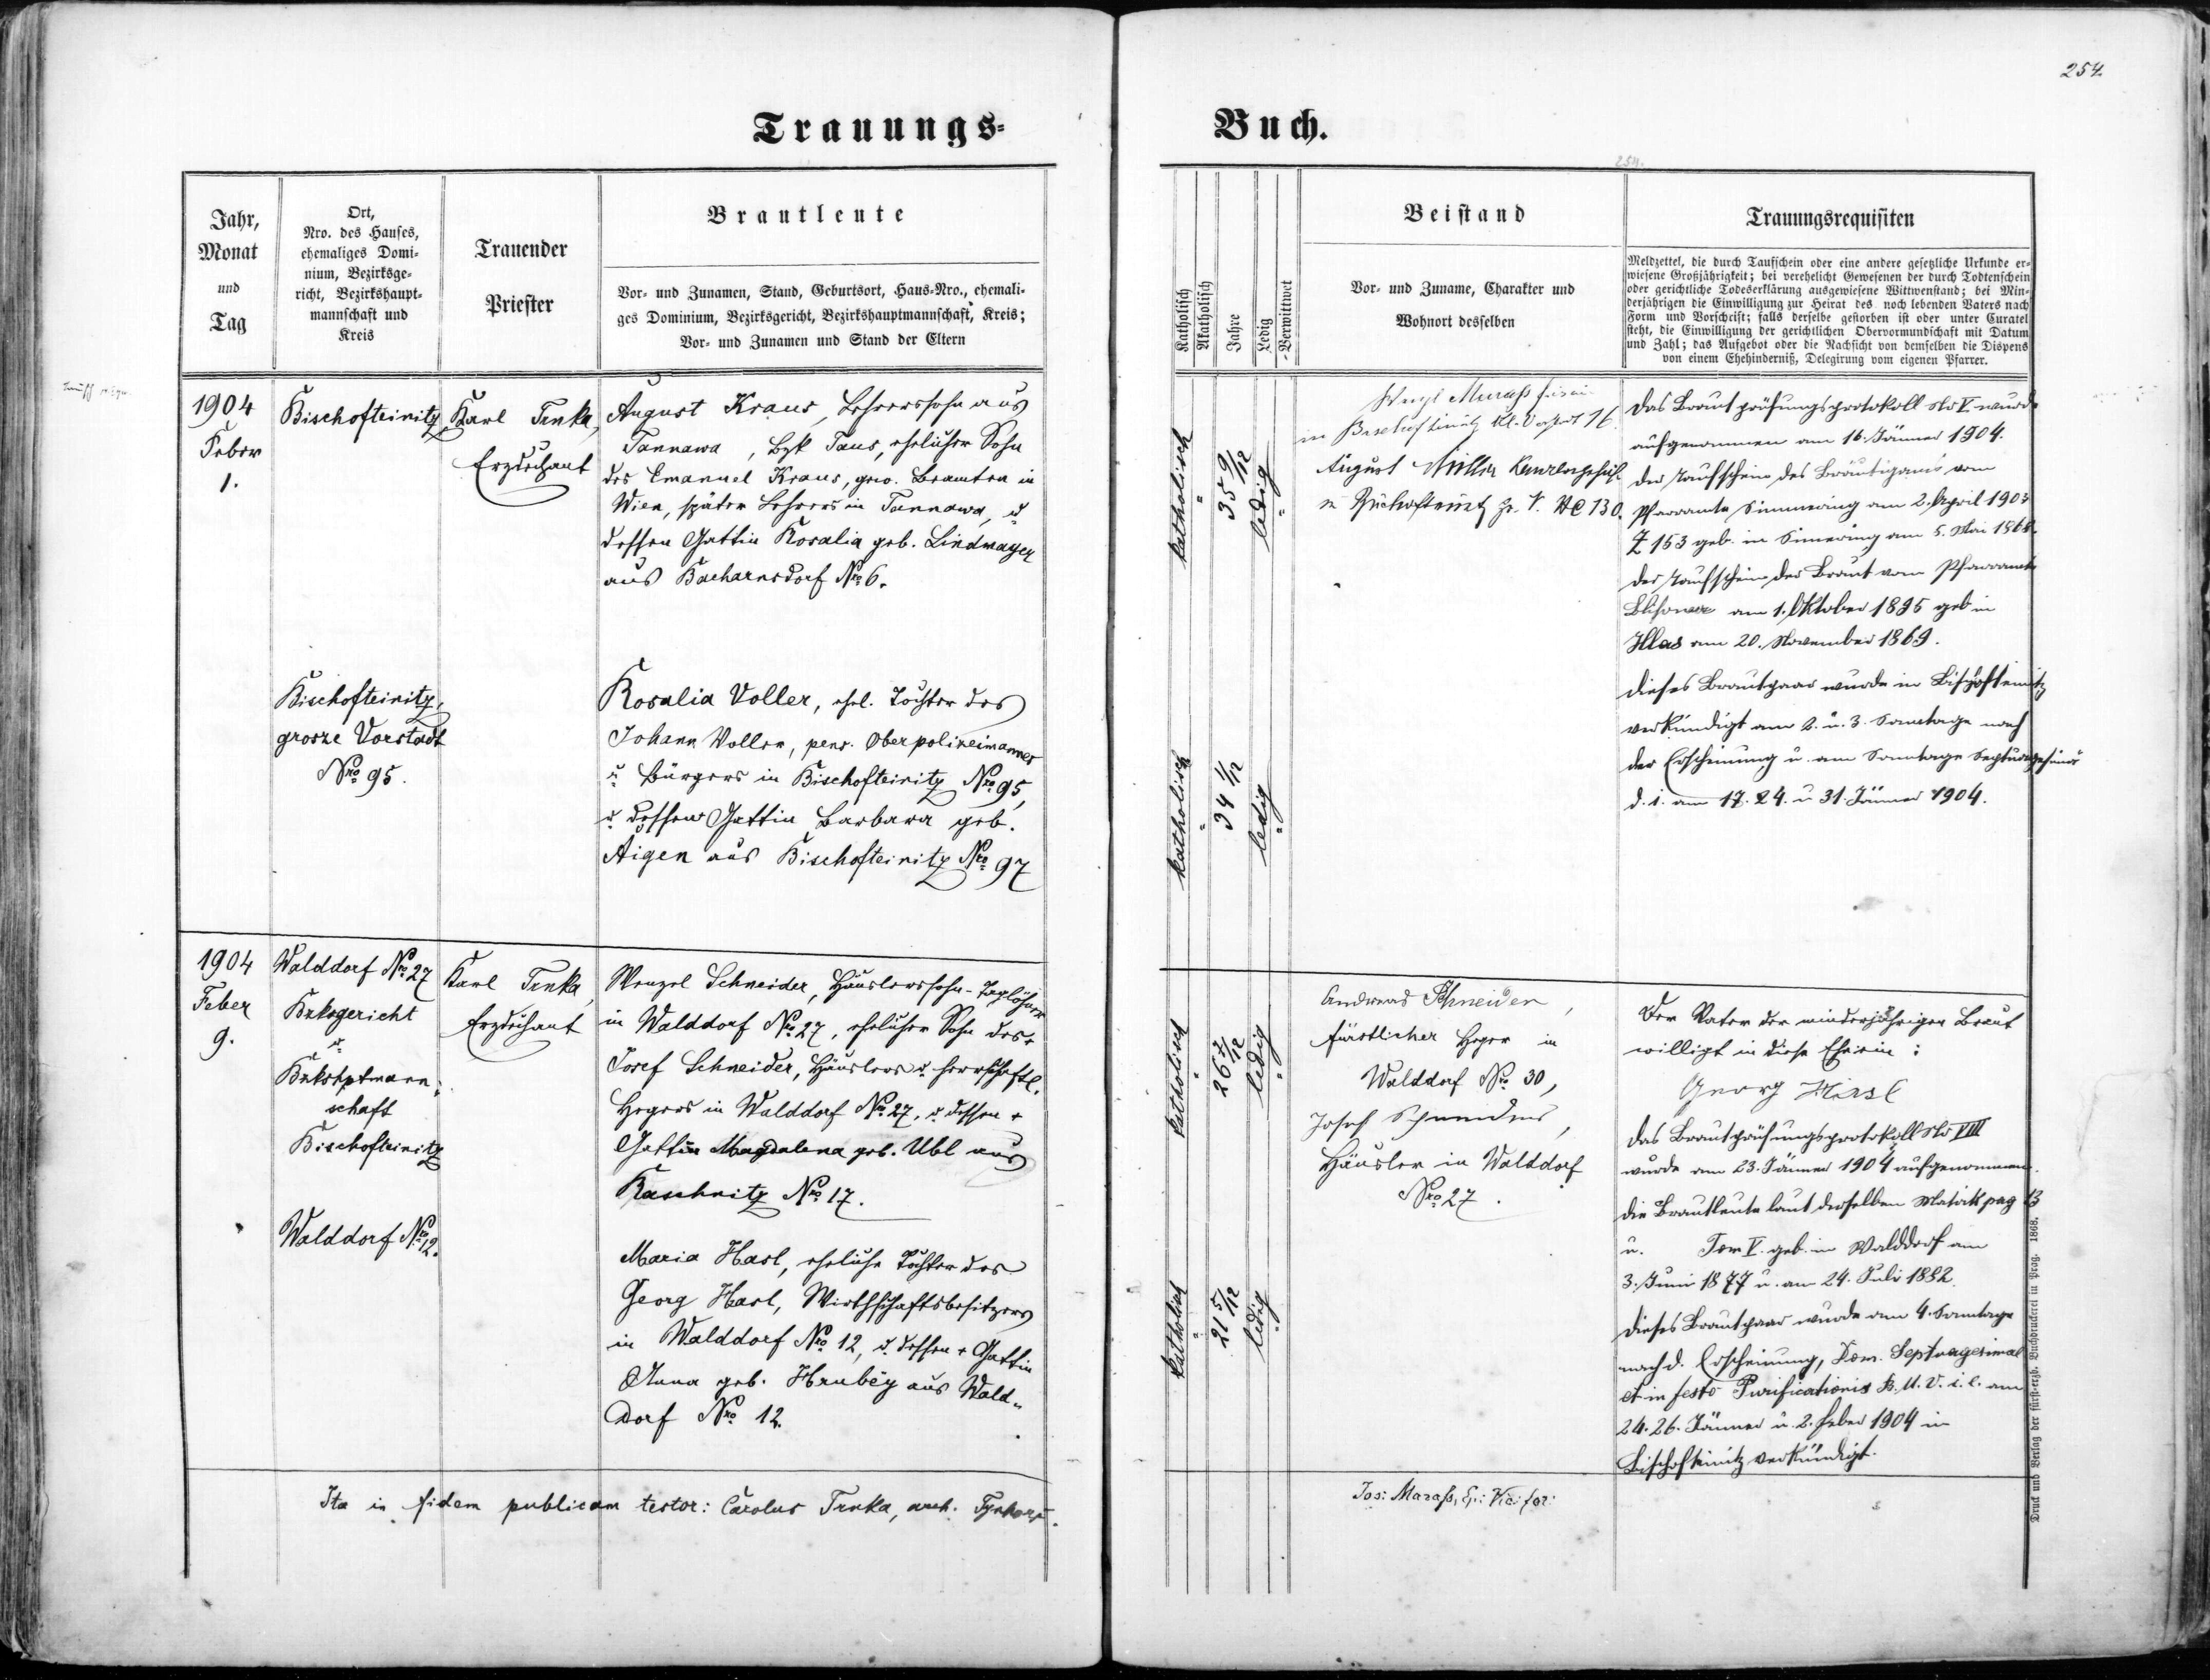 254.
Trauungs=
Buch.
254.
Jahr,
Monat
und
Tag
Ort,
Nro. des Hauses,
ehemaliges Domi-
nium, Bezirksge-
richt, Bezirkshaupt-
mannschaft und
Kreis
Trauender
Priester
Brautleute
Vor- und Zunamen, Stand, Geburtsort, Haus-Nro., ehemali-
ges Dominium, Bezirksgericht, Bezirkshauptmannschaft, Kreis;
Vor- und Zunamen und Stand der Eltern
Katholisch
Akatholisch
Jahre
Ledig
Verwittwet
Beistand
Vor- und Zuname, Charakter und
Wohnort desselben
Trauungsrequisiten
Meldzettel, die durch Taufschein oder eine andere gesetzliche Urkunde er-
wiesene Großjährigkeit; bei verehelicht Gewesenen der durch Todtenschein
oder gerichtliche Todeserklärung ausgewiesene Wittwenstand; bei Min-
derjährigen die Einwilligung zur Heirat des noch lebenden Vaters nach
Form und Vorschrift; falls derselbe gestorben ist oder unter Curatel
steht, die Einwilligung der gerichtlichen Obervormundschaft mit Datum
und Zahl; das Aufgebot oder die Nachsicht von demselben die Dispens
von einem Ehehinderniß, Delegirung vom eigenen Pfarrer.
1904
Feber
1.
Bischofteinitz
Karl Trnka,
Erzdechant
August Kraus, Lehrerssohn aus
Tannawa, Bzk Taus, ehelicher Sohn
des Emanuel Kraus, gew. Beamten in
Wien, später Lehrers in Tannawa, u
dessen Gattin Rosalia geb. Lindmayer
aus Bacharnsdorf Nro 6.
Bischofteinitz,
grosze Vorstadt
Nro 95.
Rosalia Voller, ehel. Tochter des
Johann Voller, pens. Oberpolizeimannes
u Bürgers in Bischofteinitz Nro 95,
u. dessen Gattin Barbara geb.
Aigen aus Bischofteinitz Nro 97
katholisch
35 9/12
ledig
katholisch
34 1/12
ledig
in Bischofteinitz kl. Vorstadt 76
August Müller
in Bischofteinitz gr. V. NC 130.
Das Brautprüfungsprotokoll No V wurde
aufgenommen am 16. Jänner 1904.
Der Taufschein des Bräutigams vom
Pfarramte Simmering am 2. April 1903
Z 153 geb. in Simering am 5. Mai 1868.
Der Taufschein der Braut vom Pfarramte
am 1. Oktober 1895 geb in
Illas am 20. November 1869.
Dieses Brautpaar wurde in Bischofteinitz
verkündigt am 2. u. 3. Sonntage nach
der Erscheinung u. am Sonntage Septuagesimä
d. i. am 17. 24. u 31. Jänner 1904.
1904
Feber
9.
Walddorf Nro 27
Bzksgericht
u
Bzkshptmann-
schaft
Bischofteinitz
Karl Trnka,
Erzdechant
Wenzel Schneider, Häuslerssohn - Taglöhner
in Walddorf Nro 27, ehelicher Sohn des +
Josef Schneider, Häuslers u. herrschaftl.
Hegers in Walddorf Nro 27, u. dessen +
Gattin Magdalena geb. Ubl aus
Raschnitz Nro 17.
Walddorf Nro 12.
Maria Hasl, eheliche Tochter des
Georg Hasl, Wirthschaftsbesitzers
in Walddorf Nro 12, u. dessen + Gattin
Anna geb. Hrubey aus Wald-
dorf Nro 12.
katholisch
26 7/12
ledig
katholisch
21 5/12
ledig
Andreas Schneider,
fürstlicher Heger in
Walddorf Nro 30,
Josef Schneider,
Häusler in Walddorf
Nro 27.
Der Vater der minderjährigen Braut
willigt in diese Ehe ein:
Georg Hirsl
Das Brautprüfungsprotokoll No VIII
wurde am 23. Jänner 1904 aufgenommen.
Die Brautleute laut derselben Matrik pag 13
u. Tom V. geb. in Walddorf am
3. Juni 1877 u. am 24. Juli 1882.
Dieses Brautpaar wurde am 4. Sonntage
nach d. Erscheinung, Dom. Septuagesimal
et in festo Purificationis B. M. V. i. e. am
24. 26. Jänner u. 2. Feber 1904 in
Bischofteinitz verkündigt.
Ita in fidem publicam testor: Carolus Trnka, arch.
Jos: Maraß,
Druck und Verlag der fürst-erzb. Buchdruckerei in Prag. 1868.